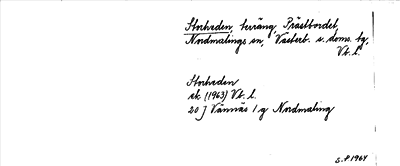 Storheden, terräng, Prästbordet,
Nordmalings sn, Västerb. s. doms. bg,
Vb. l.
Storheden
ek (1963) Vb. l.
20 J Vännäs 1 g Nordmaling
1964